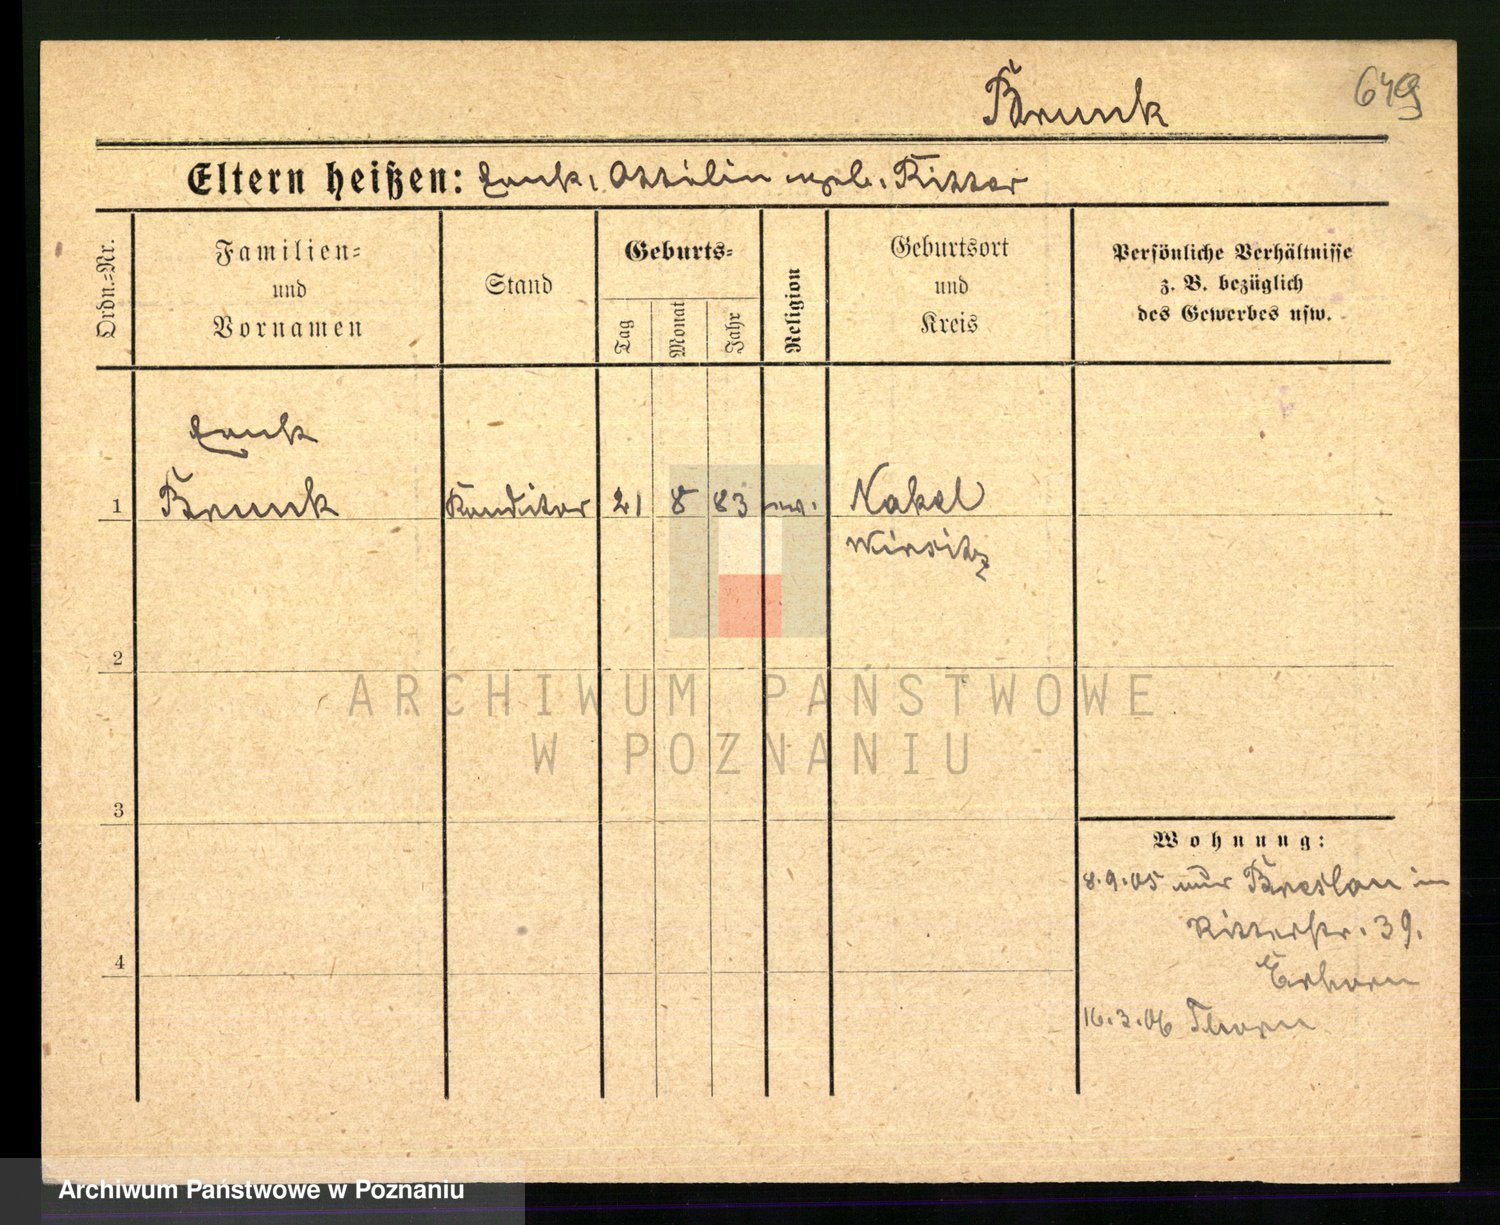 Brunk
649
Eltern heißen: Frank, Ottilie geb. Ritter
Ordn.=Nr.
Familien=
und
Vornamen
Stand
Geburts=
Tag
Monat
Jahr
Religion
Geburtsort
und
Kreis
Persönliche Verhältnisse
z. B. bezüglich
des Gewerbes usw.
1
Brunk
Konditor
21
8
83
ev.
Nakel
Wirsitz
2
ARCHIWUM PAŃSTWOWE
W POZNANIU
3
Wohnung:
8.9.05 Breslau in
Ritterstr. 39.
4
16.3.06 Thorn
Archiwum Państwowe w Poznaniu